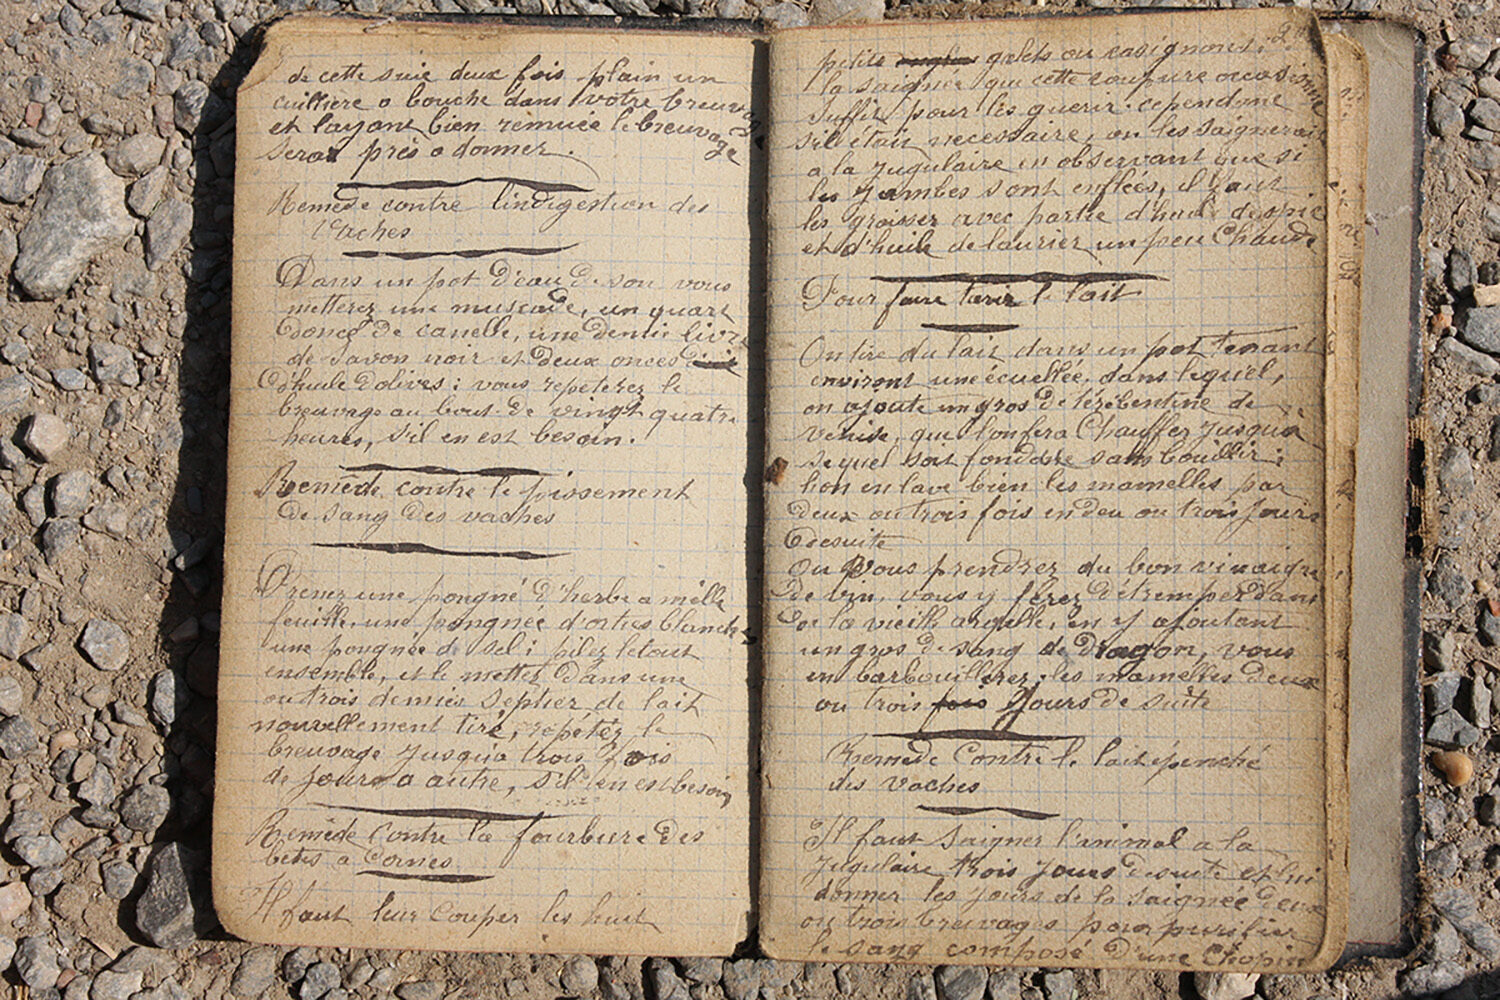 de cette suie deux fois plain un
cuilliere a bouche dans votre breuvage
et layant bien remuée le breuvage
sera près a donner.
Remède contre lindigestion des
Vaches
Dans un pot d'eau de son vous
metterez une muscade, un quart
donce de canelle, une demie livre
de savon noir et deux onces
d'huile d'olives; vous repeterez le
breuvage au bout de vingt quatre
heures, s'il en est besoin.
Remède contre le pissement
de sang des vaches
Prenez une pongné d'herbe a mille
feuille, une pongnée d'orties blanche
une pongnée de sel; pilez letout
ensemble, et le mettez dans une
ou trois demies septier de lait
nouvellement tiré, repétez le
breuvage jusqu'a trois fois
de jours a autre, s'il en est besoin
Remède contre la fourbure des
betes a Cornes
Il faut leur couper les huit
petite galets ou
la saignée que cette coupure occasionne
suffit pour les guerir. cependant
s'il était necessaire, on les saignerait
a la jugulaire en observant que si
les jambes sont enflées, il faut
les graisser avec partie d'huile despic
et d'huile de laurier un peu Chaude
Pour faire tarir le lait
On tire du lait dans un pot tenant
environt une écuellée, dans lequel,
on ajoute un gros de térébentine de
venise, que l'on fera Chauffer jusqua
se quel soit fondue sans bouillir;
lion en lave bien les mamelles par
deux ou trois fois en deu ou trois jours
Edesuite
Ou Vous prendrez du bon vinaigre
de vin, vous y ferez détremper dans
de la vieille argille, en y ajoutant
un gros de sang de dragon, vous
en barbouillerez les mamelles deux
ou trois fois jours de suite
Remède Contre le lait épenché
des vaches
Il faut saigner l'animal a la
jugulaire trois jours desuite et lui
donner les jours de la saignée deux
ou trois breuvages pour purifier
le sang composé d'une Chopine